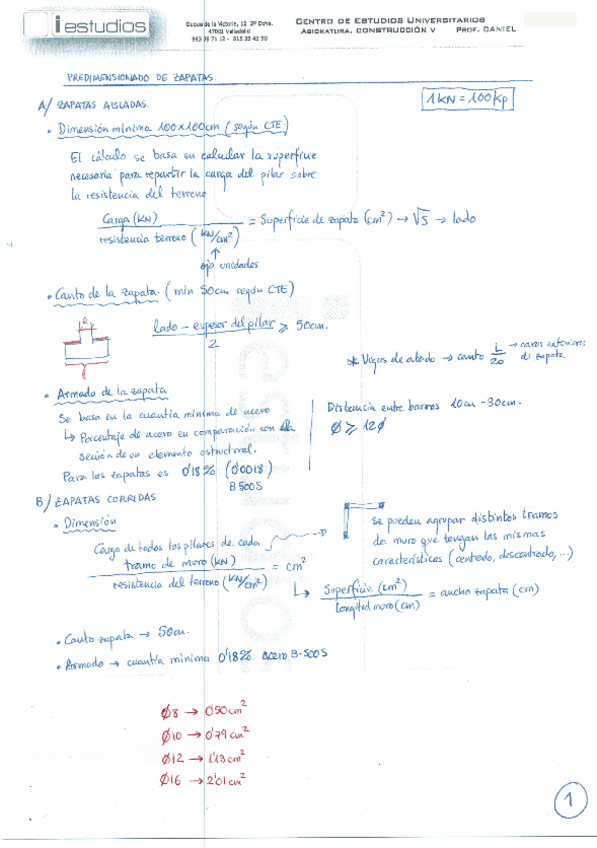 i estudios
Duque de la Victoria, 16 2º Dcha.
47001 Valladolid
CENTRO DE ESTUDIOS UNIVERSITARIOS
ASIGNATURA. CONSTRUCCIÓN V PROF. DANIEL
PREDIMENSIONADO DE ZAPATAS.
A/ ZAPATAS AISLADAS.
1KN = 100Kp
• Dimensión mínima 100x100cm (según CTE)
El cálculo se basa en calcular la superficie
necesaria para repartir la carga del pilar sobre
la resistencia del terreno
Carga (KN)
resistencia terreno (KN/cm²)
= Superficie de zapata (cm²) → √S → lado
↑
ojo unidades
• Canto de la zapata. (min 50cm según CTE)
lado - espesor del pilar
2
≥ 50cm.
* Vigas de atado → canto L/20 → caras exteriores
de zapata
• Armado de la zapata
Se basa en la cuantía mínima de acero
↳ Porcentaje de acero en comparación con la
sección de un elemento estructural.
Para las zapatas es 0'18% (0'0018)
B500S
Distancia entre barras 10cm - 30cm.
Ø ≥ 12Ø
B/ ZAPATAS CORRIDAS
• Dimensión
Carga de todos los pilares de cada
tramo de muro (KN)
resistencia del terreno (KN/cm²)
= cm²
Se pueden agrupar distintos tramos
de muro que tengan las mismas
características (centrado, descentrado, ...)
↳ Superficie (cm²)
longitud muro (cm)
= ancho zapata (cm)
• Canto zapata → 50cm.
• Armado → cuantía mínima 0'18% Acero B-500S
Ø8 → 0'50 cm²
Ø10 → 0'79 cm²
Ø12 → 1'13 cm²
Ø16 → 2'01 cm²
1